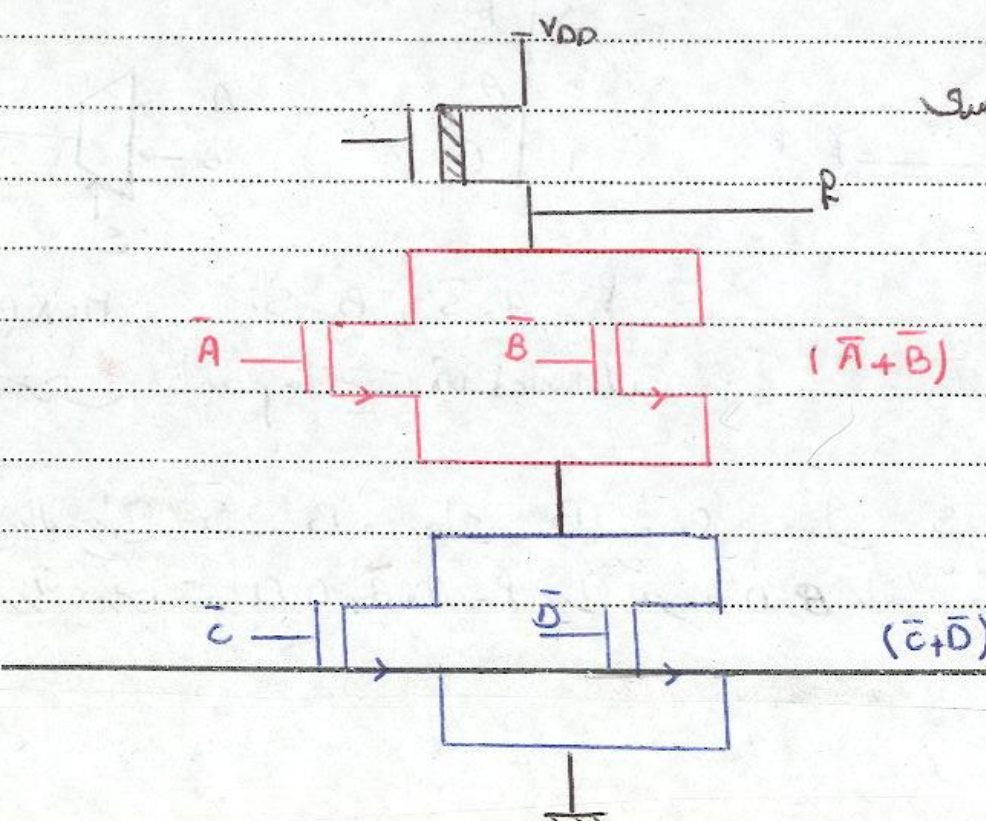 VDD
R
A̅
B̅
(A̅+B̅)
C̅
D̅
(C̅+D̅)